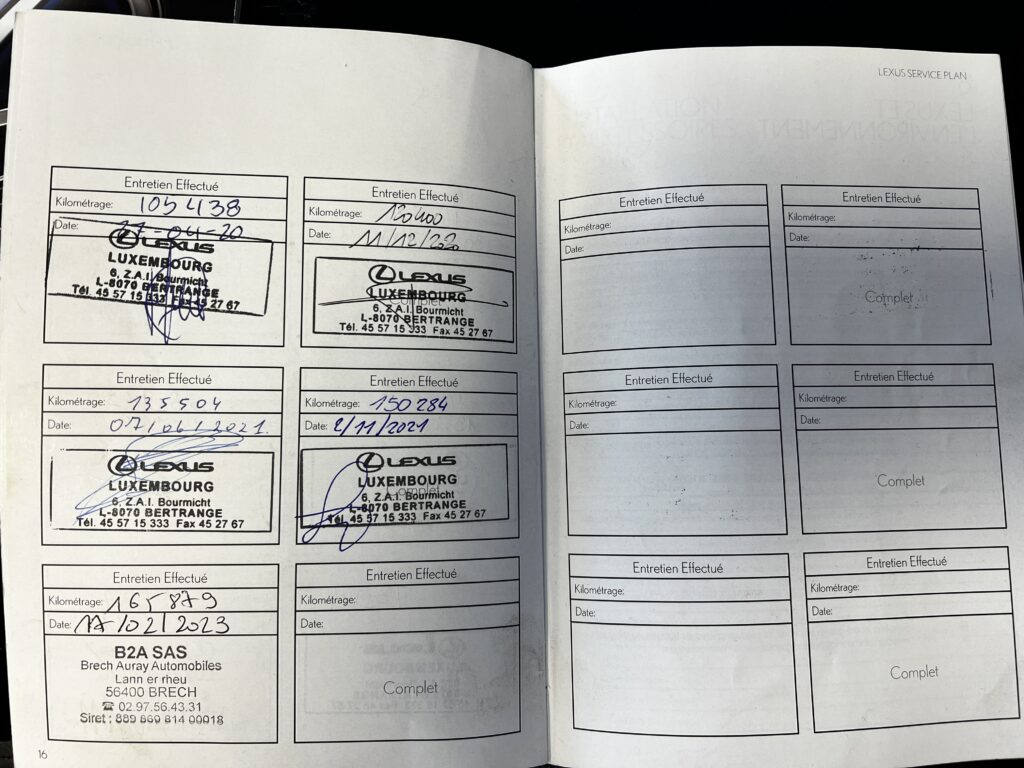 LEXUS SERVICE PLAN
Entretien Effectué
Kilométrage: 105 438
Date: 27-04-20
LEXUS
LUXEMBOURG
6, Z.A.I. Bourmicht
L-8070 BERTRANGE
Tél. 45 57 15 333 Fax 45 27 67
Entretien Effectué
Kilométrage: 120400
Date: 11/12/2020
Complet
LEXUS
LUXEMBOURG
6, Z.A.I. Bourmicht
L-8070 BERTRANGE
Tél. 45 57 15 333 Fax 45 27 67
Entretien Effectué
Kilométrage: 135504
Date: 07/06/2021.
LEXUS
LUXEMBOURG
6, Z.A.I. Bourmicht
L-8070 BERTRANGE
Tél. 45 57 15 333 Fax 45 27 67
Entretien Effectué
Kilométrage: 150284
Date: 2/11/2021
Complet
LEXUS
LUXEMBOURG
6, Z.A.I. Bourmicht
L-8070 BERTRANGE
Tél. 45 57 15 333 Fax 45 27 67
Entretien Effectué
Kilométrage: 165879
Date: 17/02/2023
B2A SAS
Brech Auray Automobiles
Lann er rheu
56400 BRECH
☎ 02.97.56.43.31
Siret : 889 860 814 00018
Entretien Effectué
Kilométrage:
Date:
Complet
16
Entretien Effectué
Kilométrage:
Date:
Entretien Effectué
Kilométrage:
Date:
Complet
Entretien Effectué
Kilométrage:
Date:
Entretien Effectué
Kilométrage:
Date:
Complet
Entretien Effectué
Kilométrage:
Date:
Entretien Effectué
Kilométrage:
Date:
Complet